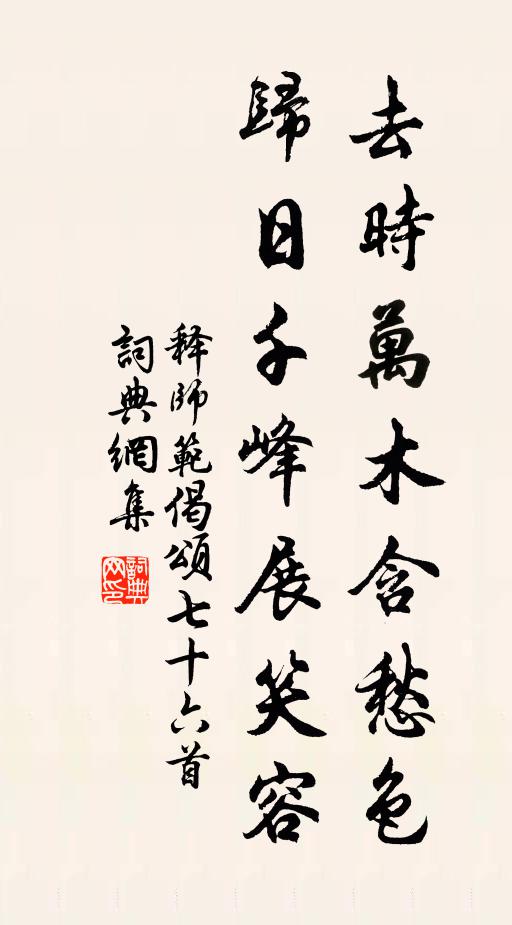 去時萬木含愁色
歸日千峰展笑容
释師範偈頌七十六首
詞典網集
詞典網印